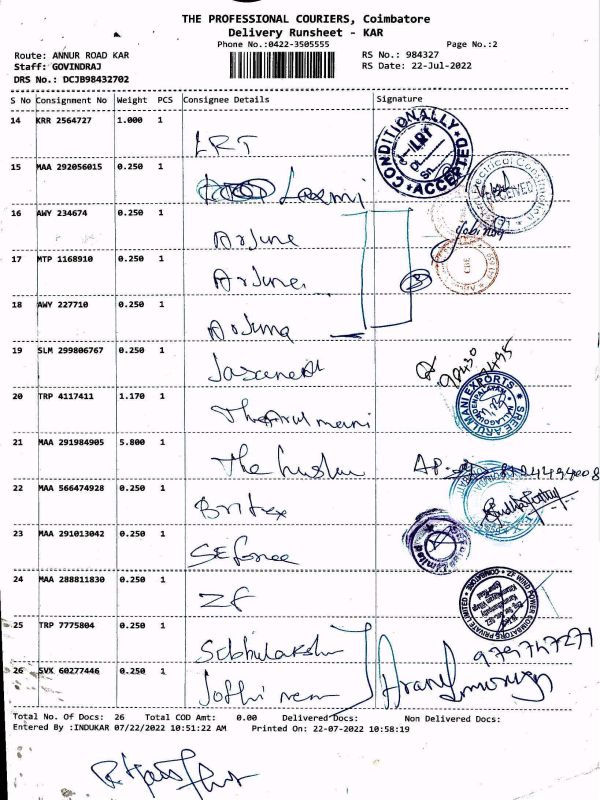 THE PROFESSIONAL COURIERS, Coimbatore
Delivery Runsheet - KAR
Phone No.:0422-3505555
Page No.:2
Route: ANNUR ROAD KAR
RS No.: 984327
Staff: GOVINDRAJ
RS Date: 22-Jul-2022
DRS No.: DCJB98432702
S No Consignment No Weight PCS Consignee Details Signature
14 KRR 2564727 1.000 1
LRT
CONDITIONALLY ACCEPTED
LRT
15 MAA 292056015 0.250 1
Laxmi
RECEIVED
16 AWY 234674 0.250 1
Arjune
17 MTP 1168910 0.250 1
Arjune
18 AWY 227710 0.250 1
Arjuna
19 SLM 299806767 0.250 1
20 TRP 4117411 1.170 1
SREE ARULMANI EXPORTS
21 MAA 291984905 5.800 1
22 MAA 566474928 0.250 1
Britex
23 MAA 291013042 0.250 1
24 MAA 288811830 0.250 1
ZF
ZF WIND POWER COIMBATORE PRIVATE LIMITED
25 TRP 7775804 0.250 1
9791747271
26 SVX 60277446 0.250 1
Total No. Of Docs: 26 Total COD Amt: 0.00 Delivered Docs: Non Delivered Docs:
Entered By :INDUKAR 07/22/2022 10:51:22 AM Printed On: 22-07-2022 10:58:19